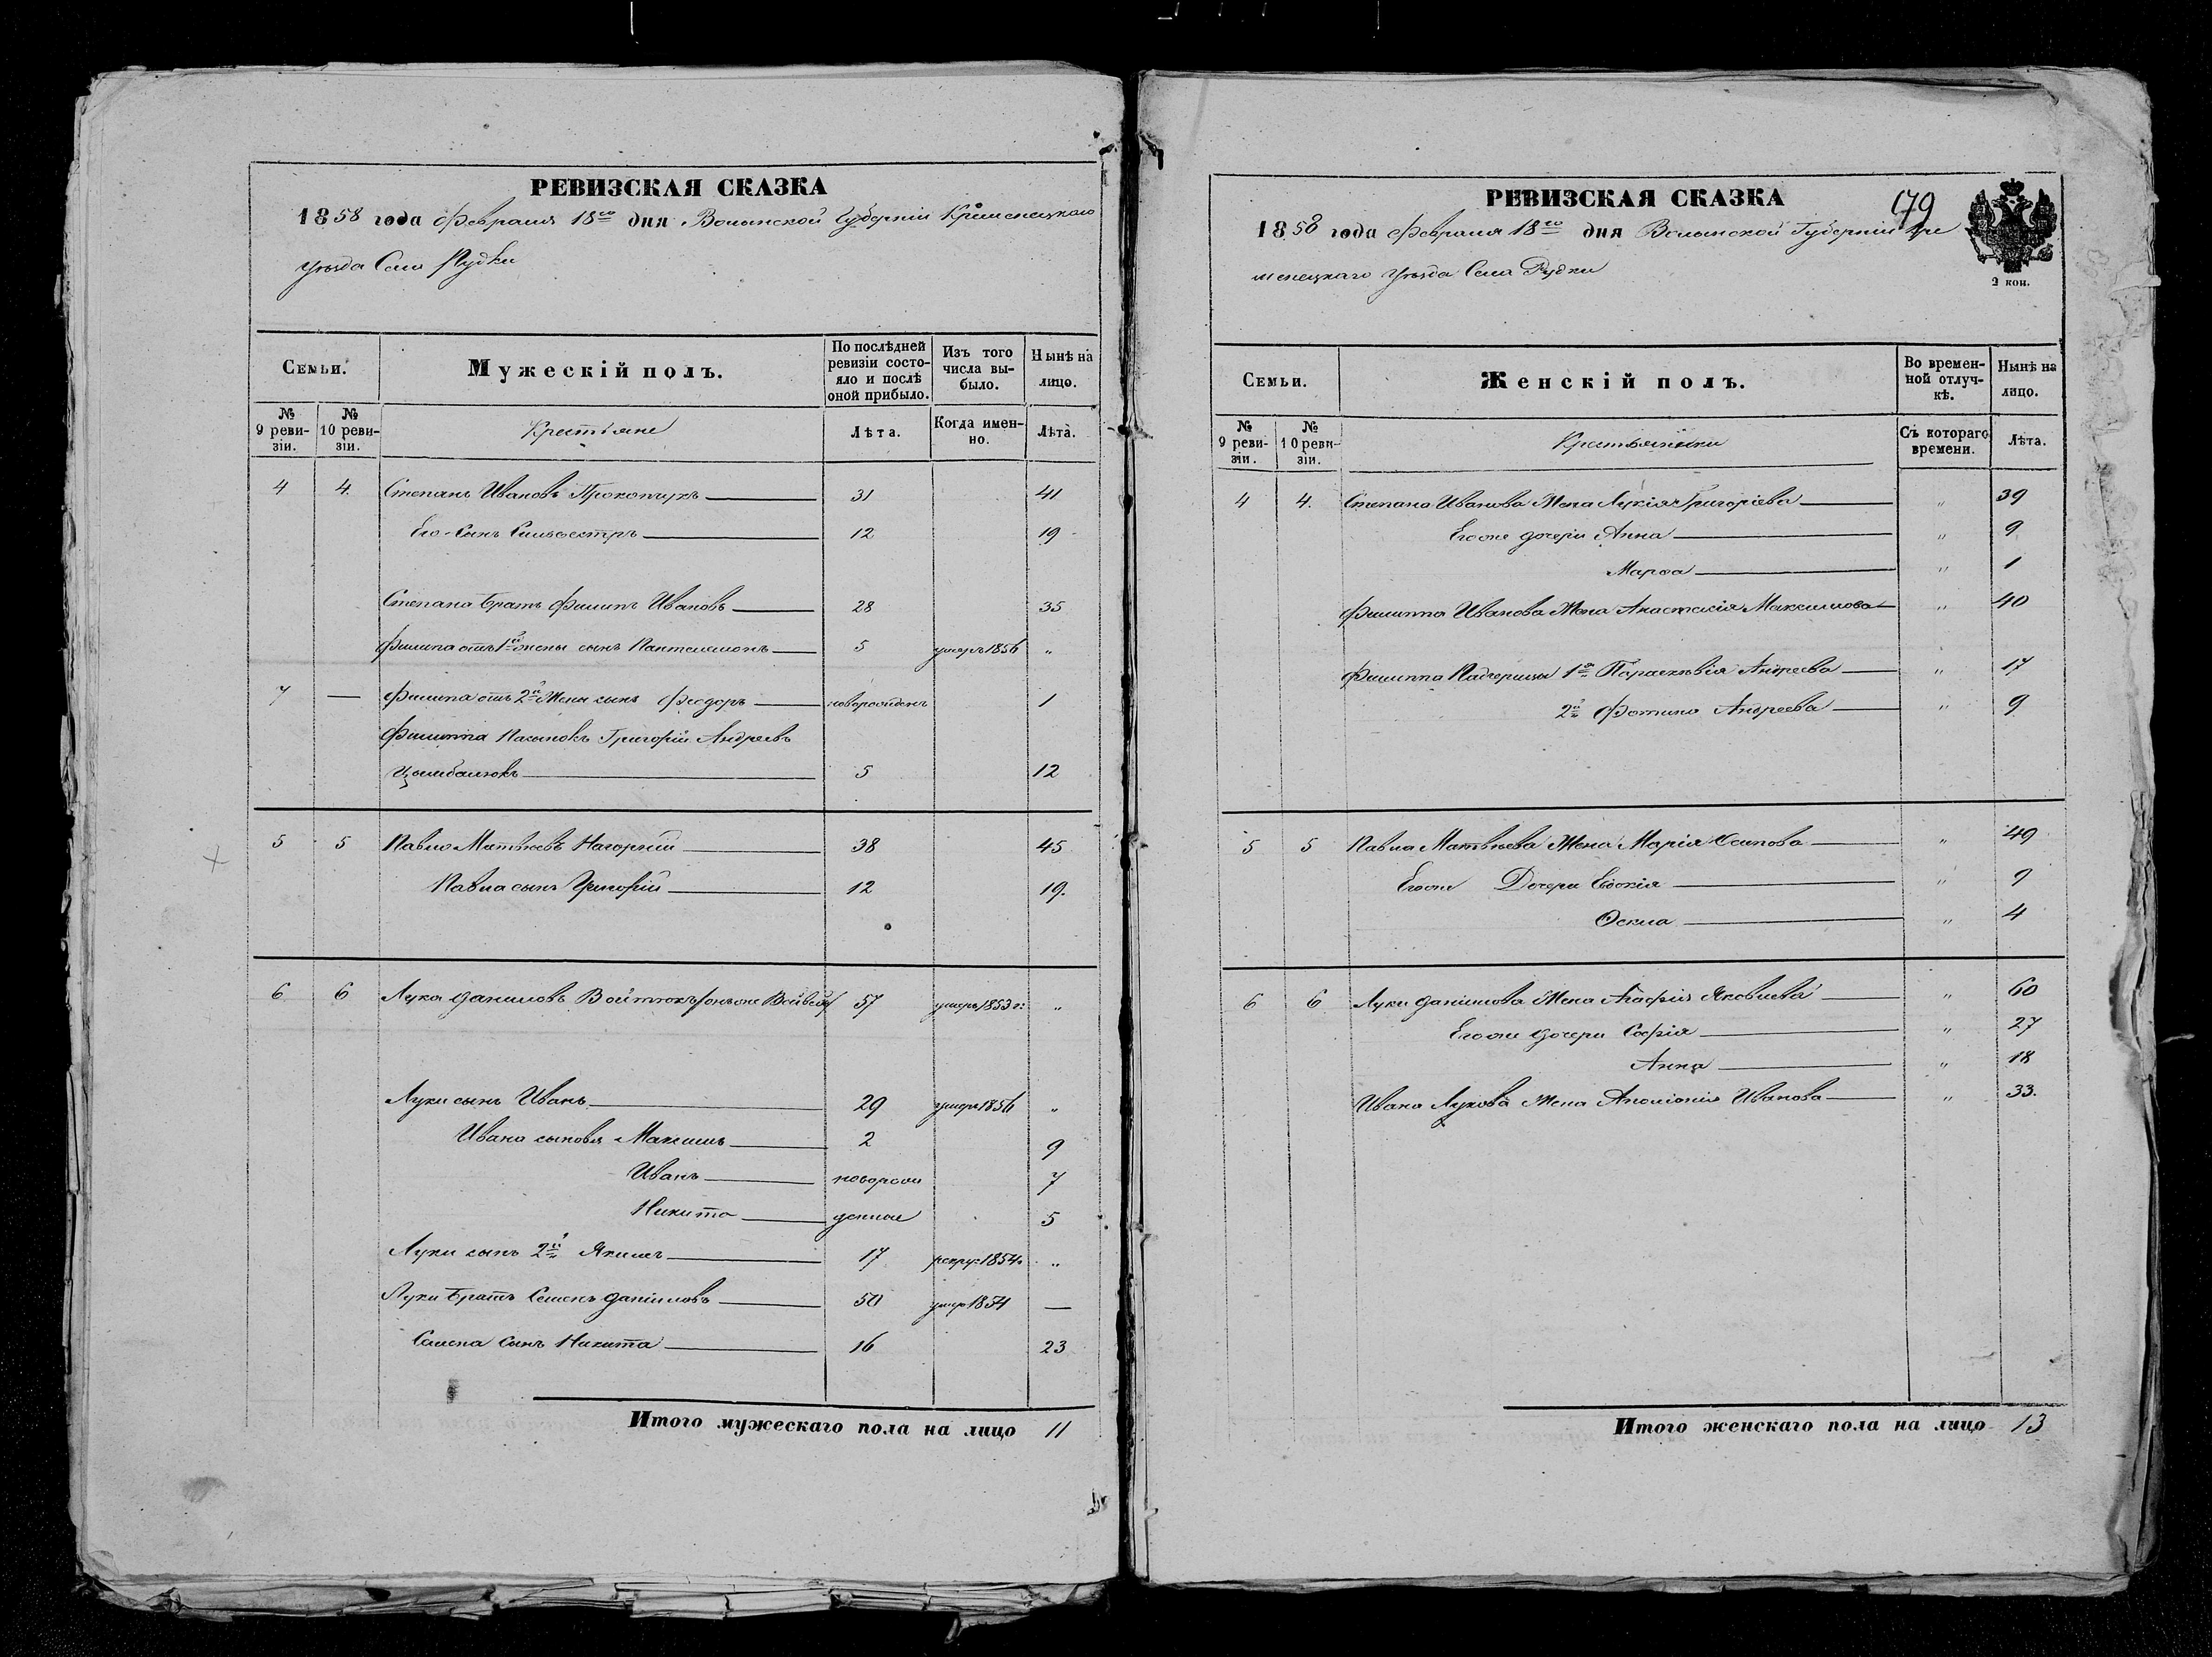 РЕВИЗСКАЯ СКАЗКА
1858 года Февраля 18го дня Волынской Губерніи Кременецкаго
уѣзда Села Рудки
Семьи.
Мужескій полъ.
По послѣдней ревизіи состояло и послѣ оной прибыло.
Изъ того числа выбыло.
Нынѣ на лицо.
№ 9 ревизіи.
№ 10 ревизіи.
Крестьяне
Лѣта.
Когда именно.
Лѣта.
4 4 Степанъ Ивановъ Прокопчукъ 31 41
Его Сынъ Сильвестръ 12 19
Степана Братъ Филипъ Ивановъ 28 35
Филипа отъ 1й жены сынъ Пантелемонъ 5 умеръ 1856 "
7 — Филипа отъ 2й Жены сынъ Феодоръ новорожденъ 1
Филиппа Пасынокъ Григорій Андреевъ
Цымбалюкъ 5 12
5 5 Павло Матвѣевъ Нагорній 38 45
Павла сынъ Григорій 12 19.
6 6 Лука Даниловъ Войтюкъ /онъ же 57 умеръ 1853 г: "
Луки сынъ Иванъ 29 умеръ 1856 "
Ивана сыновья Максимъ 2 9
Иванъ новорож 7
Никита денные 5
Луки сынъ 2й Якимъ 17 рекру: 1854. "
Луки Братъ Семенъ Даниловъ 50 умер 1854 —
Семена Сынъ Никита 16 23
Итого мужескаго пола на лицо 11
РЕВИЗСКАЯ СКАЗКА
179
1858 года Февраля 18го дня Волынской Губерніи Кре
менецкаго уѣзда Села Рудки
2 коп.
Семьи.
Женскій полъ.
Во временной отлучкѣ.
Нынѣ на лицо.
№ 9 ревизіи.
№ 10 ревизіи.
Крестьянки
Съ котораго времени.
Лѣта.
4 4. Степана Иванова Жена Лукія Григоріева " 39
Егоже дочери Анна " 9
Марѳа " 1
Филиппа Иванова Жена Анастасія Максимова " 40
Филиппа Падчерицы 1я Параскѣвія Андреева " 17
2я Фотина Андреева " 9
5 5 Павла Матвѣева Жена Марія Осипова " 49
Егоже Дочери Евдокія " 9
Фекла " 4
6 6 Луки Данилова Жена Агафія Яковлева " 60
Егоже дочери Софія " 27
Анна " 18
Ивана Лукова Жена Аполіонія Иванова " 33.
Итого женскаго пола на лицо 13